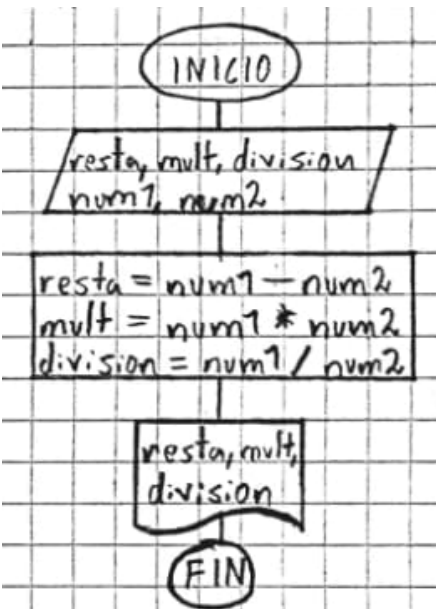 INICIO
resta, mult, division
num1, num2
resta = num1 - num2
mult = num1 * num2
division = num1 / num2
resta, mult,
division
FIN